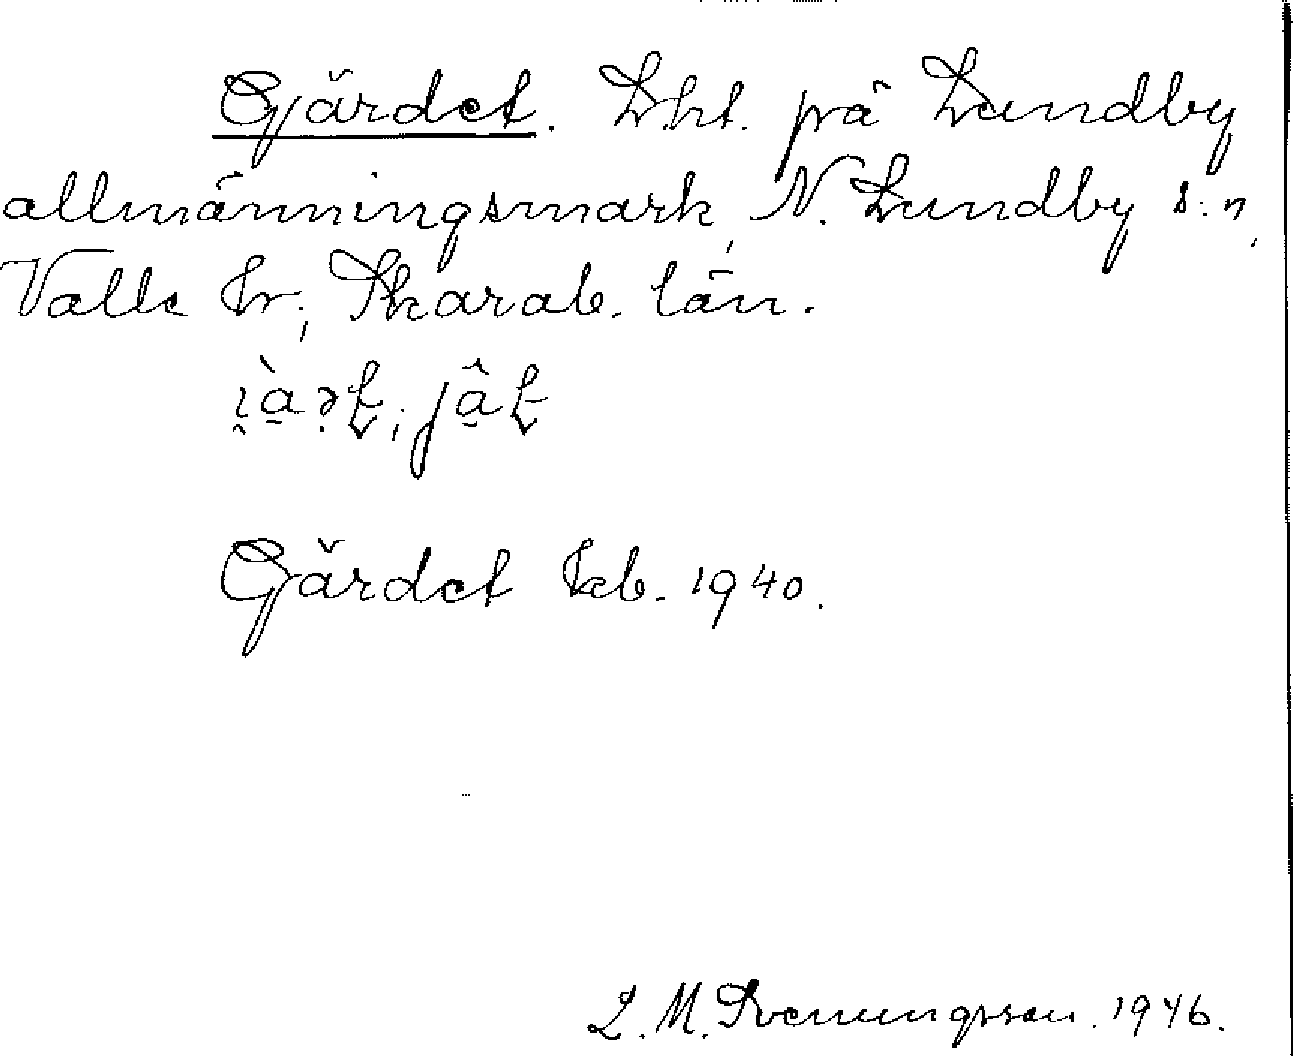 Gärdet. Lht. på Lundby
allmänningsmark, N. Lundby s:n,
Valle hr, Skarab. län.
Gärdet Ekb. 1940.
L. M. Svenungsson. 1946.